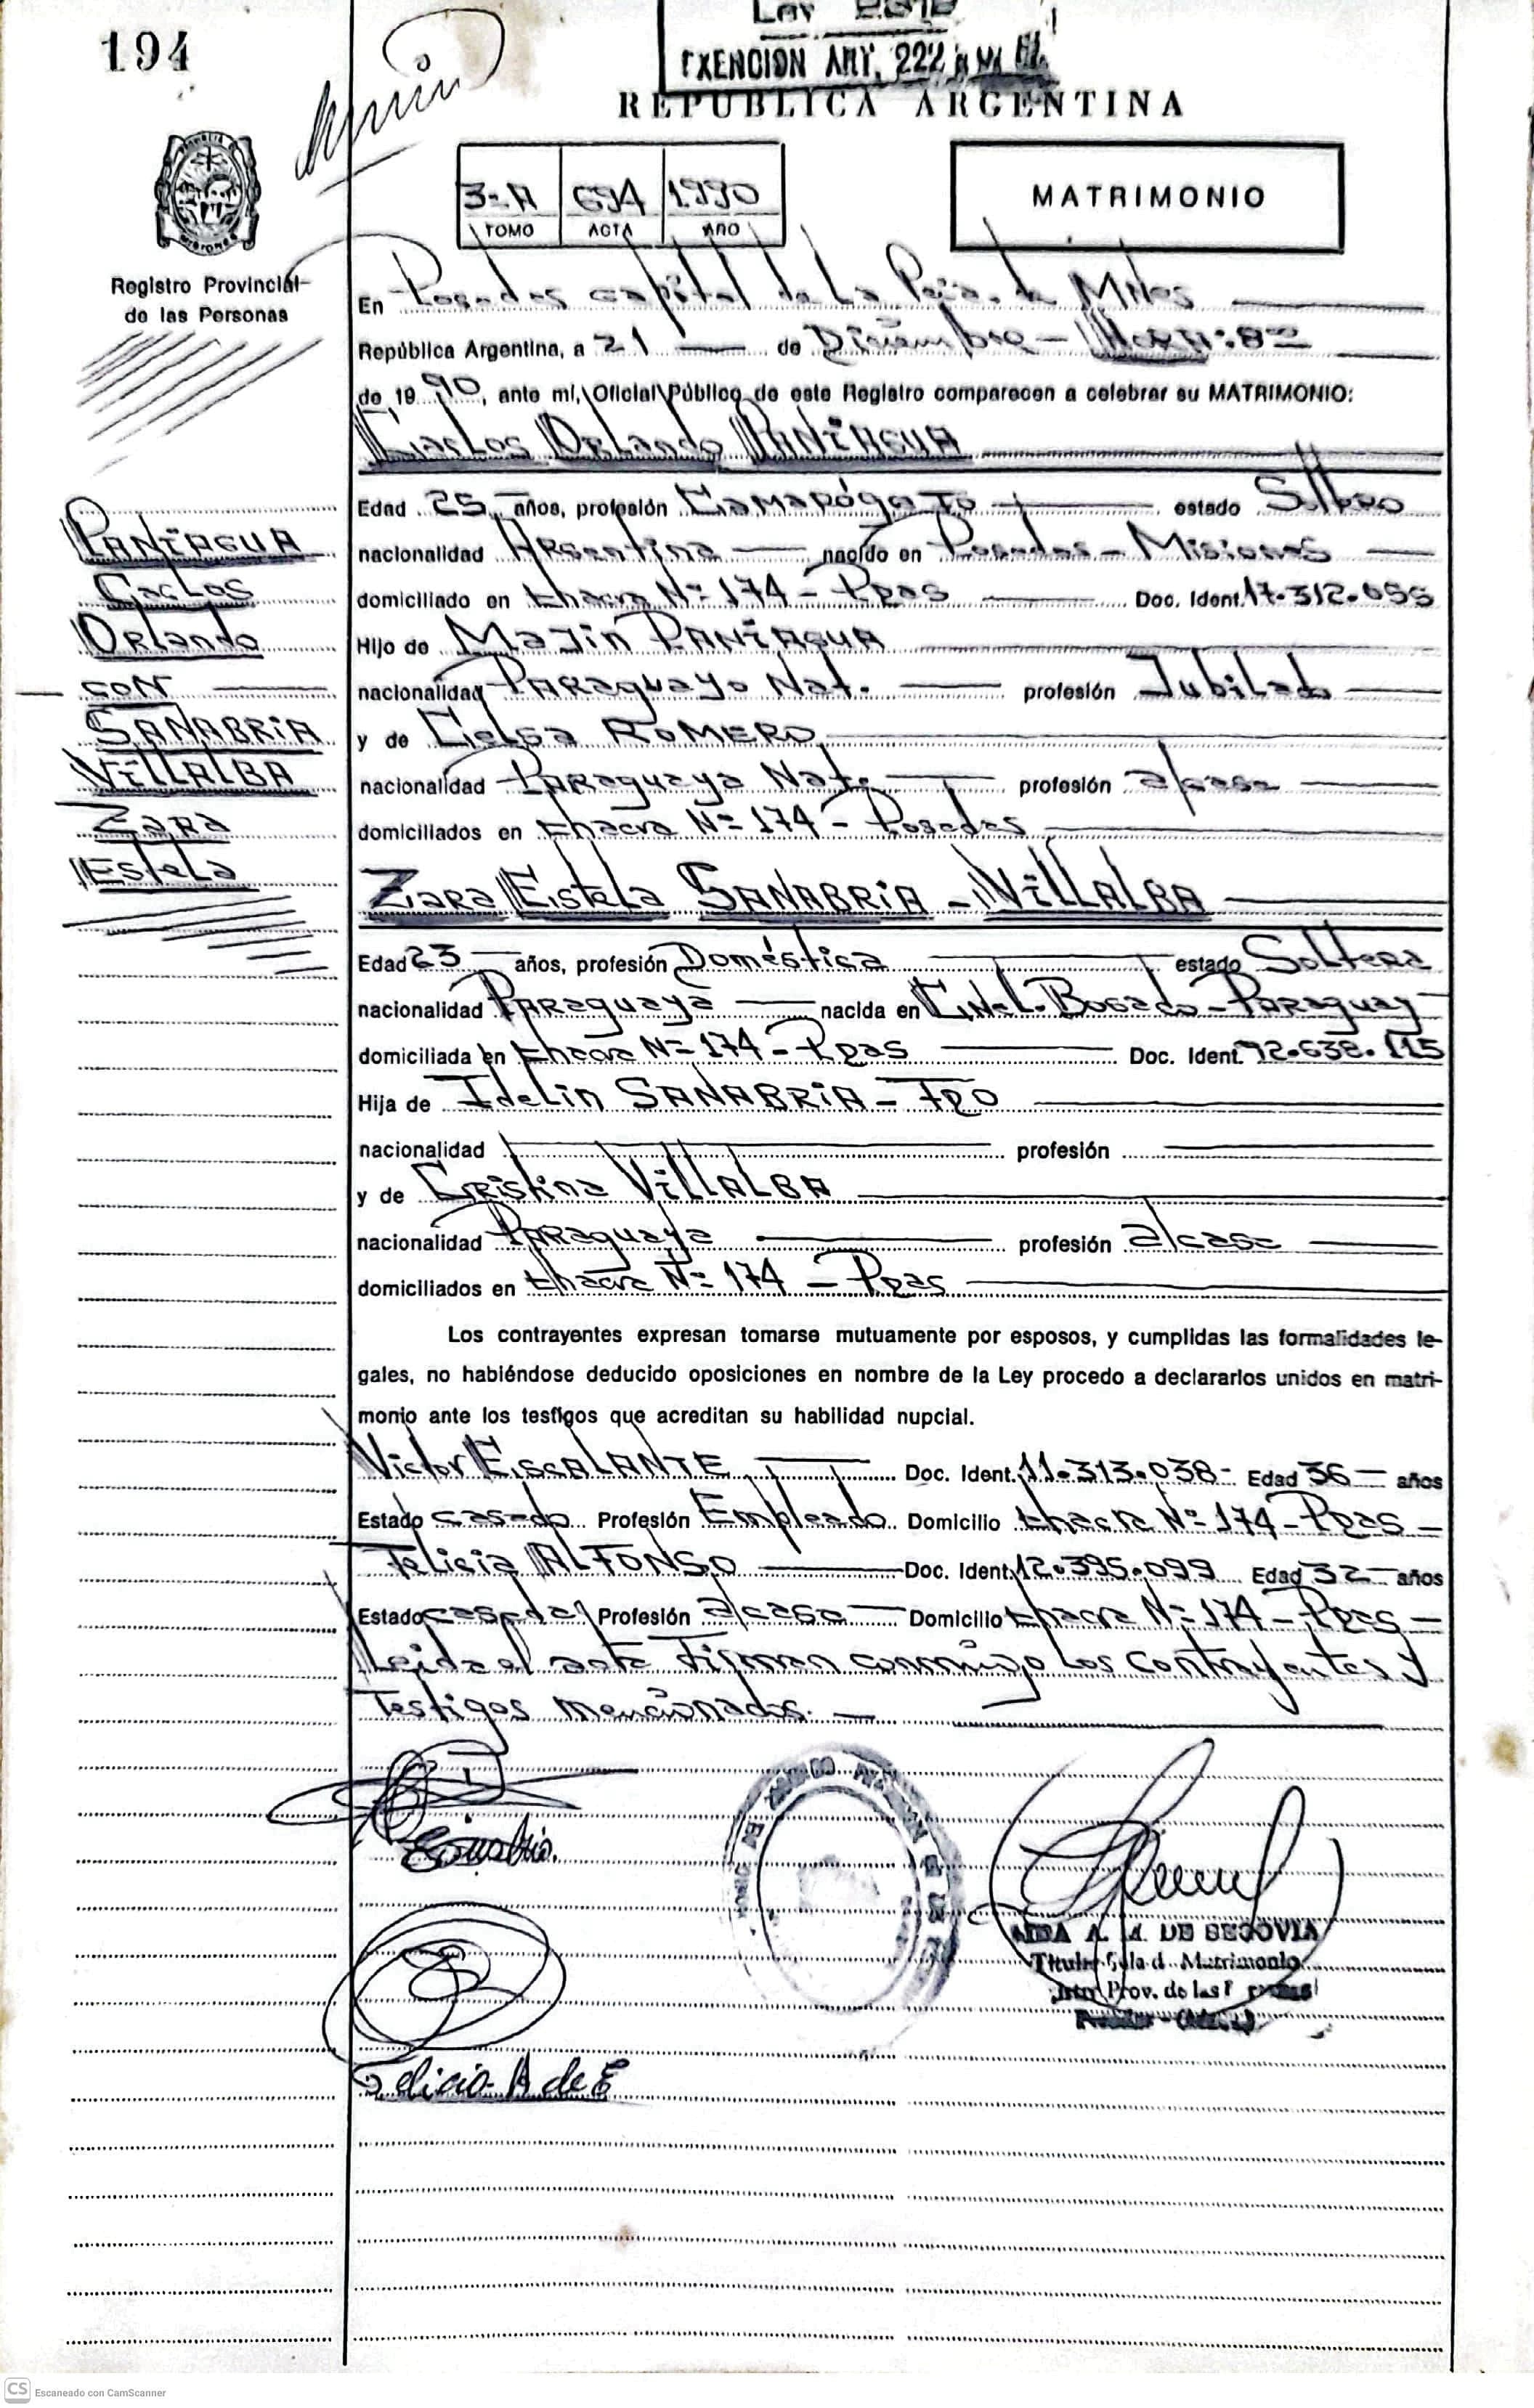 194
EXENCION ART. 222
REPUBLICA ARGENTINA
3-A 694 1990
TOMO ACTA AÑO
MATRIMONIO
Registro Provincial
de las Personas
En Posadas capital de La Pcia. de Mnes
República Argentina, a 21 de Diciembre -
de 1990, ante mí, Oficial Público de este Registro comparecen a celebrar su MATRIMONIO:
Carlos Orlando PANIAGUA
Edad 25 años, profesión Camarógrafo estado Soltero
nacionalidad Argentina nacido en Posadas - Misiones
domiciliado en chacra Nº 174 - Pdas Doc. Ident. 17.312.055
Hijo de Majin PANIAGUA
nacionalidad Paraguayo Nat. profesión Jubilado
y de Celsa ROMERO
nacionalidad Paraguaya Nat. profesión a/casa
domiciliados en chacra Nº 174 - Posadas
Zara Estela SANABRIA - VILLALBA
Edad 23 años, profesión Doméstica estado Soltera
nacionalidad Paraguaya nacida en Cnel. Bogado - Paraguay
domiciliada en chacra Nº 174 - Pdas Doc. Ident. 92.638.115
Hija de Idelin SANABRIA - Fdo
nacionalidad profesión
y de Cristina VILLALBA
nacionalidad Paraguaya profesión a/casa
domiciliados en chacra Nº 174 - Pdas
Los contrayentes expresan tomarse mutuamente por esposos, y cumplidas las formalidades le-
gales, no habiéndose deducido oposiciones en nombre de la Ley procedo a declararlos unidos en matri-
monio ante los testigos que acreditan su habilidad nupcial.
Victor ESCALANTE Doc. Ident. 11.313.038 - Edad 36 años
Estado casado Profesión Empleado Domicilio chacra Nº 174 - Pdas -
Felicia ALFONSO Doc. Ident. 12.395.099 Edad 32 años
Estado casada Profesión a/casa Domicilio chacra Nº 174 - Pdas -
Leida el acta Firman conmigo Los Contrayentes y
Testigos mencionados. -
PANIAGUA
Carlos
Orlando
con
SANABRIA
VILLALBA
Zara
Estela
Felicia A de E
AIDA A. A. DE SEGOVIA
Titular Sala d Matrimonio
Prov. de las P
CS Escaneado con CamScanner